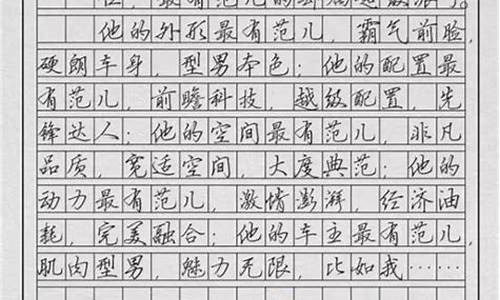 最有范儿的
他的外形最有范儿，霸气前脸，
硬朗车身，型男本色；他的配置最
有范儿，前瞻科技，越级配置，先
锋达人；他的空间最有范儿，非凡
品质，宽适空间，大度典范；他的
动力最有范儿，激情澎湃，经济油
耗，完美融合；他的车主最有范儿，
肌肉型男，魅力无限，比如我……